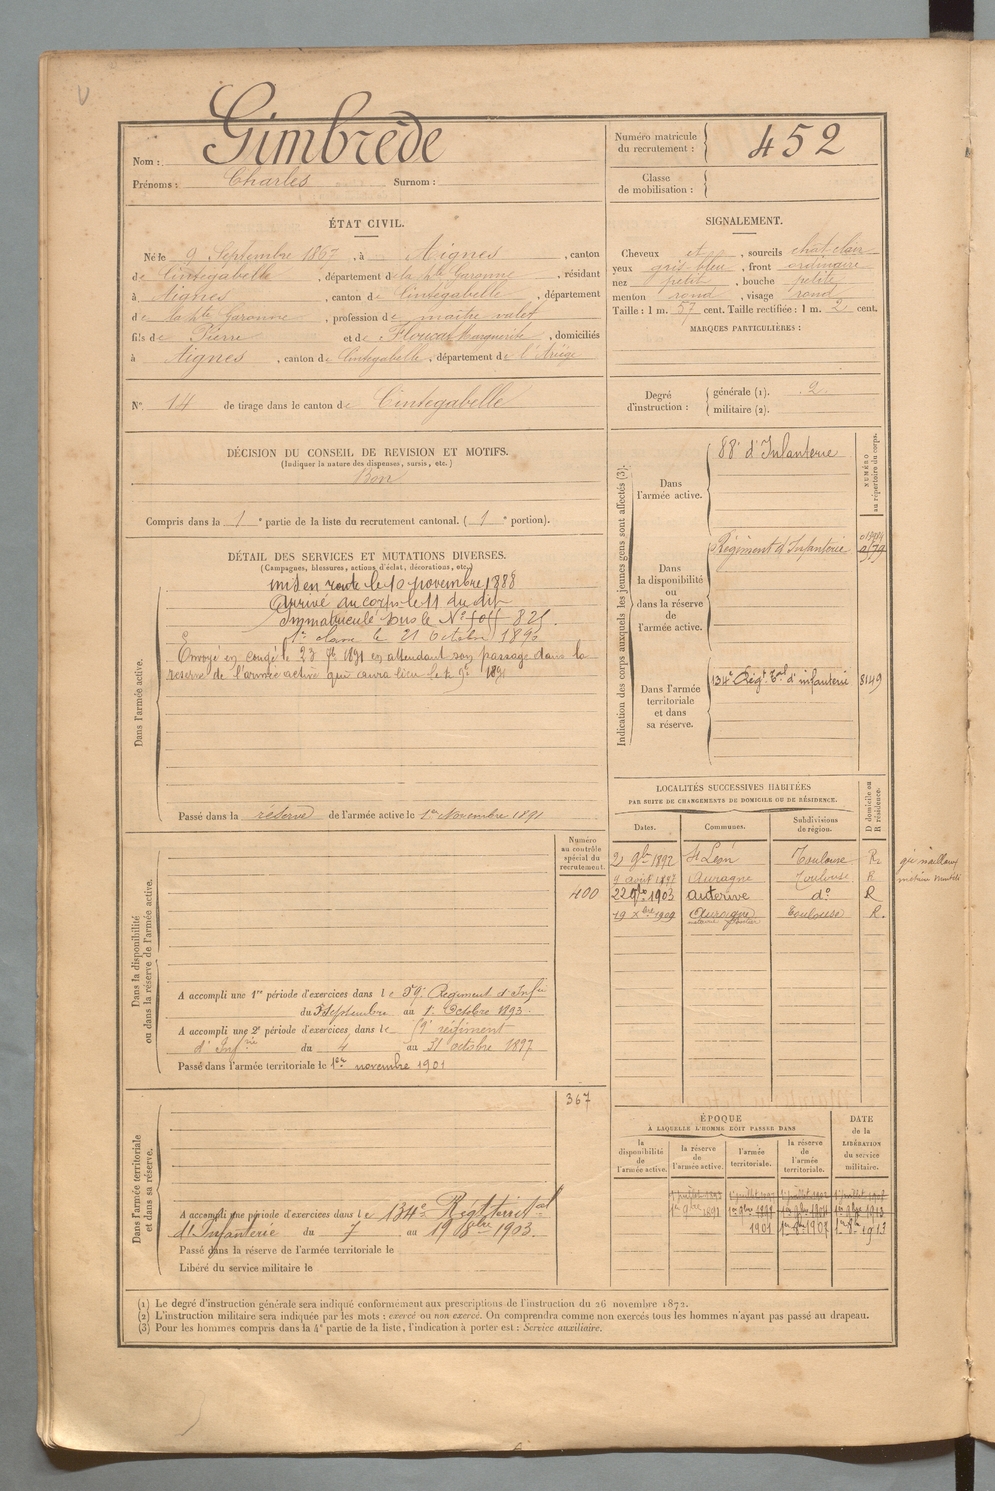 Nom : Gimbrède
Prénoms : Charles Surnom :
Numéro matricule
du recrutement : 452
Classe
de mobilisation :
ÉTAT CIVIL.
Né le 9 Septembre 1867, à Aignes, canton
de Cintegabelle, département de la Hte Garonne, résidant
à Aignes, canton de Cintegabelle, département
de la Hte Garonne, profession de maître valet
fils de Pierre et de Marguerite, domiciliés
à Aignes, canton de Cintegabelle, département de l'Ariège
SIGNALEMENT.
Cheveux et, sourcils chat clair
yeux gris bleu, front ordinaire
nez petit, bouche petite
menton rond, visage rond
Taille : 1 m. 57 cent. Taille rectifiée : 1 m. 2 cent.
MARQUES PARTICULIÈRES :
N° 14 de tirage dans le canton de Cintegabelle
Degré
d'instruction :
générale (1). 2
militaire (2).
DÉCISION DU CONSEIL DE REVISION ET MOTIFS.
(Indiquer la nature des dispenses, sursis, etc.)
Bon
Compris dans la 1e partie de la liste du recrutement cantonal. (1e portion).
DÉTAIL DES SERVICES ET MUTATIONS DIVERSES.
(Campagnes, blessures, actions d'éclat, décorations, etc.)
Dans l'armée active.
mis en route le 10 novembre 1888
Arrivé au corps le 11 du dit
Immatriculé sous le N°
le 21 Octobre 1890
Envoyé en congé le 23 7bre 1891 en attendant son passage dans la
réserve de l'armée active qui aura lieu le 1891
Passé dans la réserve de l'armée active le 1er Novembre 1891
Indication des corps auxquels les jeunes gens sont affectés (3).
NUMÉRO
au répertoire du corps.
Dans
l'armée active.
88e d'Infanterie
Dans
la disponibilité
ou
dans la réserve
de
l'armée active.
Régiment d'Infanterie
Dans l'armée
territoriale
et dans
sa réserve.
134e Régt Tal d'infanterie 8149
LOCALITÉS SUCCESSIVES HABITÉES
PAR SUITE DE CHANGEMENTS DE DOMICILE OU DE RÉSIDENCE.
Dates. Communes. Subdivisions
de région. D domicile ou
R résidence.
2 9bre 1892 St Léon Toulouse R
Auragne Toulouse R
22 1903 auterive do R
19 Xbre 1909 Auragne Toulouse R.
Dans la disponibilité
ou dans la réserve de l'armée active.
Numéro
au contrôle
spécial du
recrutement.
400
A accompli une 1re période d'exercices dans le 59e Régiment d'Infie
du 5 Septembre au 1er Octobre 1893.
A accompli une 2e période d'exercices dans le 59e régiment
d'Infrie du 4 au 31 octobre 1897
Passé dans l'armée territoriale le 1er novembre 1901
Dans l'armée territoriale
et dans sa réserve.
367
A accompli une période d'exercices dans le 134e Régt territal
d'Infanterie du 7 au 19 1903.
Passé dans la réserve de l'armée territoriale le
Libéré du service militaire le
ÉPOQUE
À LAQUELLE L'HOMME DOIT PASSER DANS
la
disponibilité
de
l'armée active.
la réserve
de
l'armée active.
l'armée
territoriale.
la réserve
de
l'armée
territoriale.
DATE
de la
LIBÉRATION
du service
militaire.
1er 9bre 1891
1901 1907 1913
(1) Le degré d'instruction générale sera indiqué conformément aux prescriptions de l'instruction du 26 novembre 1872.
(2) L'instruction militaire sera indiquée par les mots : exercé ou non exercé. On comprendra comme non exercés tous les hommes n'ayant pas passé au drapeau.
(3) Pour les hommes compris dans la 4e partie de la liste, l'indication à porter est : Service auxiliaire.